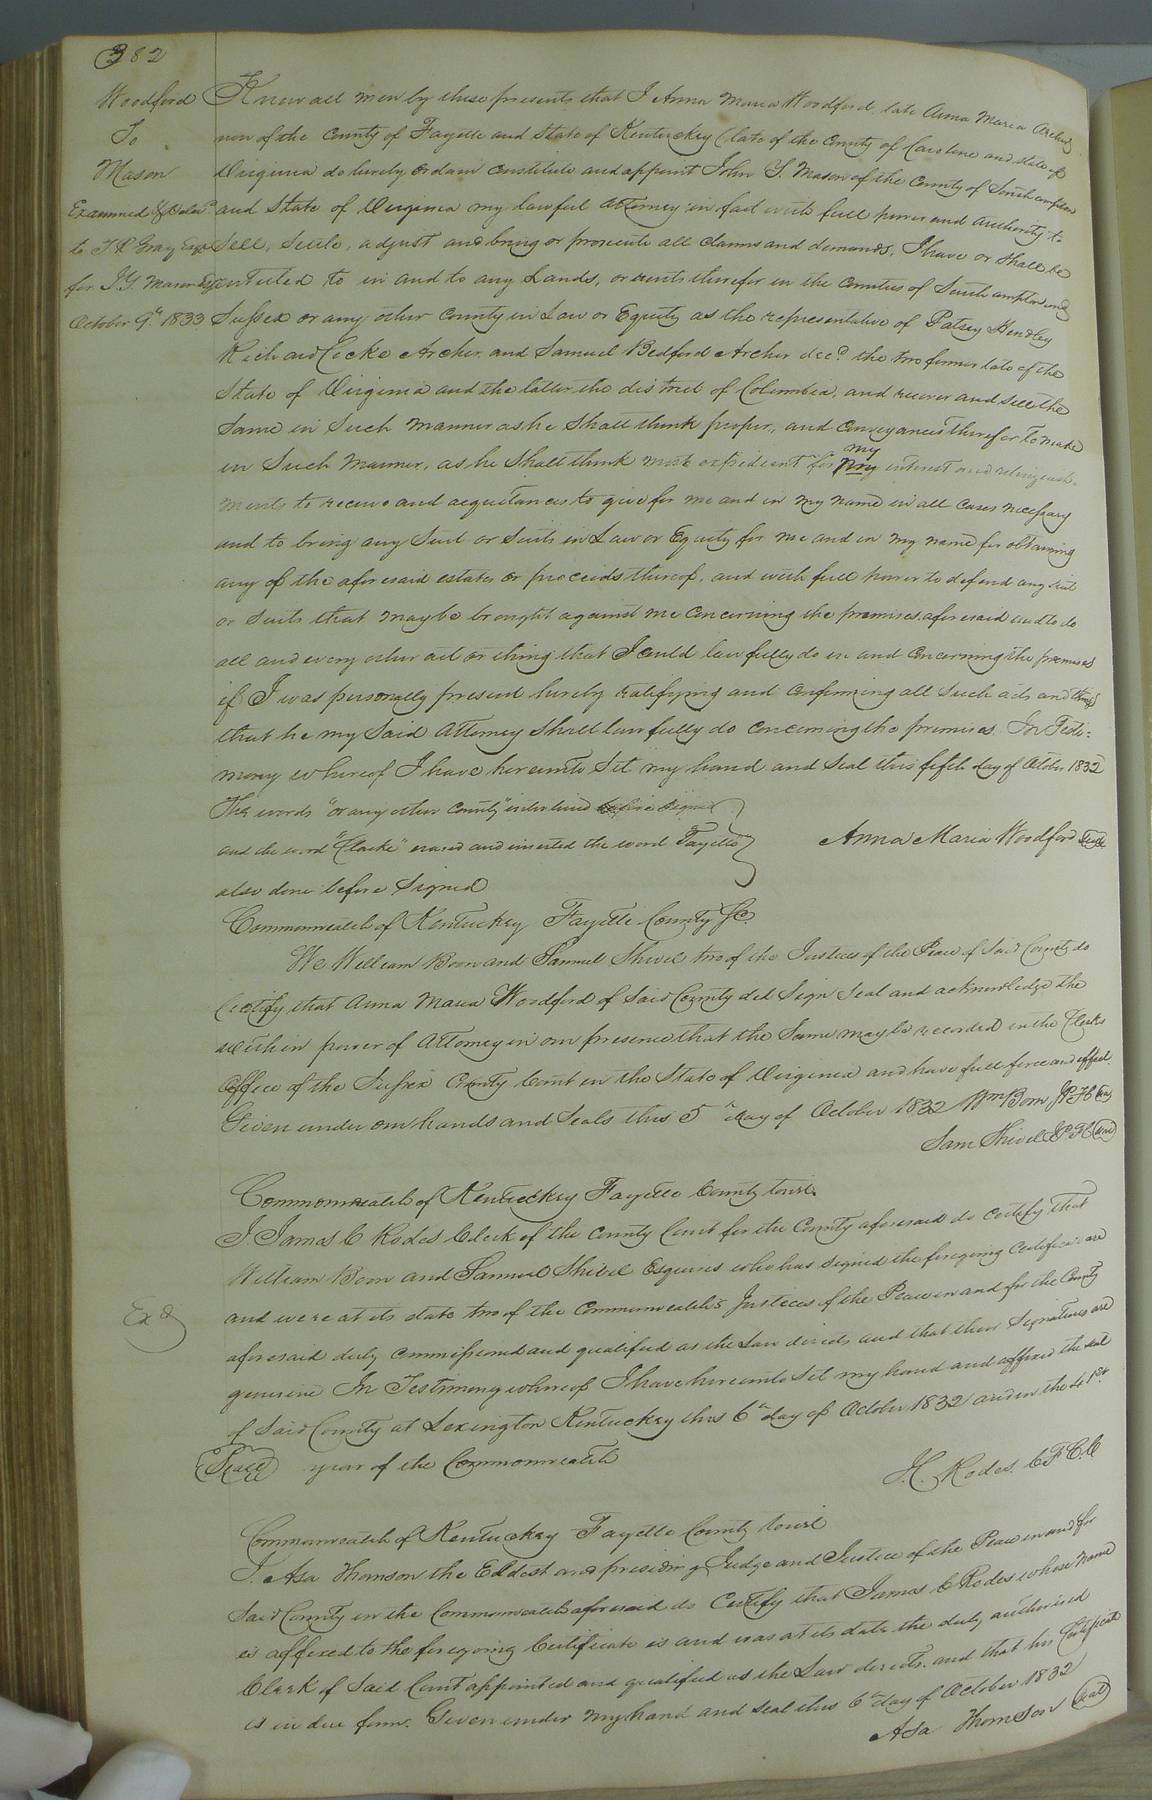 382
Woodford
To
Mason
Examined & Deld
to T R Gray Esqr
for J. Y. Mason Esq
October 9th 1833
Know all men by these presents that I Anna Maria Woodford, late Anna Maria Archer,
now of the County of Fayette and State of Kentuckey (late of the County of Caroline and state of
Virginia do hereby ordain constitute and appoint John Y. Mason of the County of Southampton
and State of Virginia my lawful Attorney in fact with full power and authority to
Sell, Settle, adjust and bring or prosecute all claims and demands, I have or Shall be
entitled to in and to any Lands, or rents therefor in the Counties of Southampton and
Sussex or any other County in Law or Equity as the representative of Patsey Hendley
Richard Cocke Archer, and Samuel Bedford Archer decd. the two former late of the
State of Virginia and the latter the district of Columbia, and recover and sell the
Same in Such manner as he Shall think proper, and Conveyances therefor to make
in Such Manner, as he Shall think most expedient for my interest and relinquish-
ments to receive and acquitances to give for me and in my name in all cases necessary
and to bring any Suit or Suits in Law or Equity for me and in my name for obtaining
any of the aforesaid estates or proceeds thereof, and with full power to defend any suit
or Suits that may be brought against me concerning the premises aforesaid and to do
all and every other act or thing that I could lawfully do in and Concerning the premises
if I was personally present hereby ratifying and confirming all Such acts and things
that he my Said Attorney Shall lawfully do concerning the premises. In Testi=
mony whereof I have hereunto Set my hand and Seal this fifth day of Octobr 1832
The words "or any other County" interlined before Signed
and the word "Clarke" erased and inserted the word Fayette
also done before Signed
Anna Maria Woodford Seal
Commonwealth of Kentuckey Fayette County Sc.
We William Boon and Samuel Shivel two of the Justices of the Peace of Said County do
Certify that Anna Maria Woodford of Said County did Sign Seal and acknowledge the
within power of Attorney in our presence that the Same may be recorded in the Clerks
Office of the Sussex County Court in the State of Virginia and have full force and effect.
Given under our hands and Seals this 5th day of October 1832 Wm Boon JPFC Seal
Sam Shivel JPFC Seal
Commonwealth of Kentuckey Fayette County Court
I. James C Rodes Clerk of the County Court for the County aforesaid do certify that
William Boon and Samuel Shivel Esquires who has signed the foregoing Certificate are
and were at its date two of the Commonwealth's Justices of the Peace in and for the County
Exd
aforesaid duly commissioned and qualified as the Law directs and that their Signatures are
genuine In Testimony whereof I have hereunto Set my hand and affixed the seal
of Said County at Lexington Kentuckey this 6th day of October 1832 and in the 41st
Seal year of the Commonwealth
J.C. Rodes. C F C.C
Commonwealth of Kentuckey Fayette County Court
I. Asa Thomson the Eldest and presiding Judge and Justice of the Peace in and for
Said County in the Commonwealth aforesaid do Certify that James C Rodes whose name
is affixed to the foregoing Certificate is and was at its date the duly authorised
Clerk of Said Court appointed and qualified as the Law directs. and that his Certificate
is in due form. Given under my hand and seal this 6th day of October 1832
Asa Thomson Seal